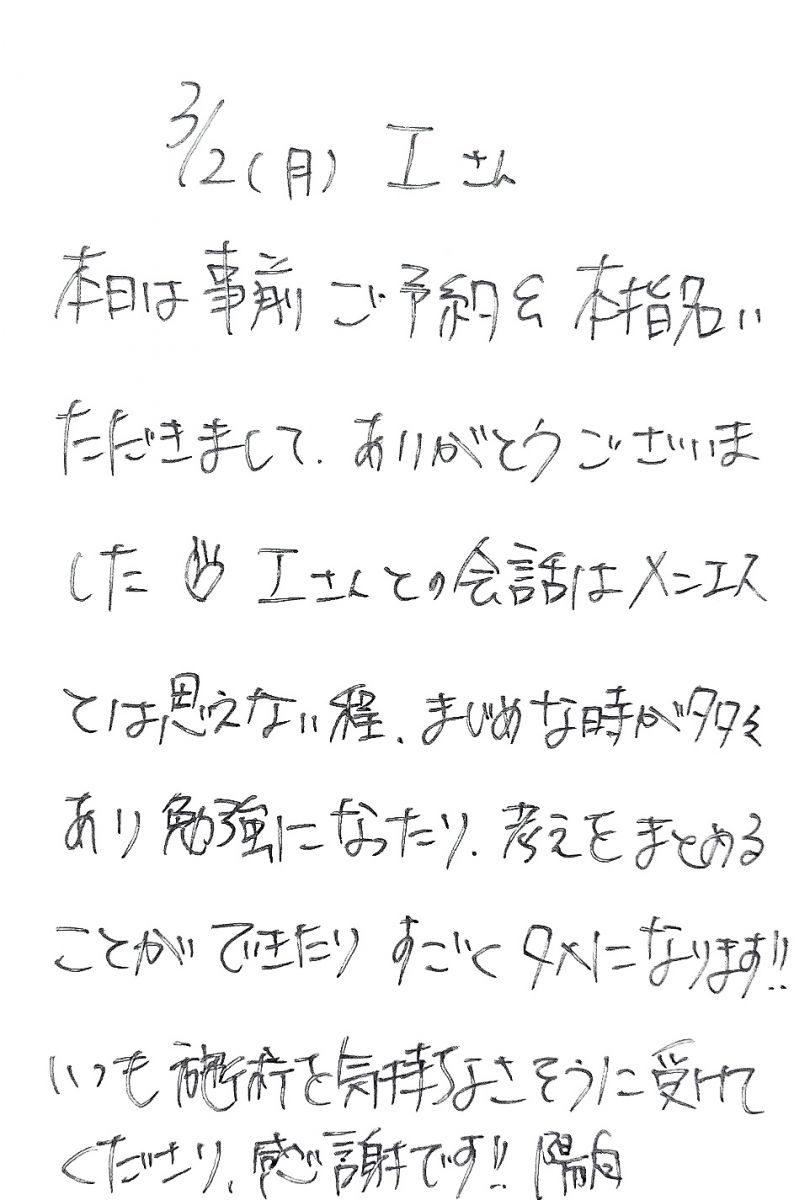 3/2(月) Iさん
本日は事前ご予約&本指名い
ただきまして、ありがとうございま
した Iさんとの会話はメンエス
とは思えない程、まじめな時が多々
あり勉強になったり、考えをまとめる
ことができたりすごくタメになります!!
いつも施術を気持ちよさそうに受けて
くださり、感謝です!! 陽向